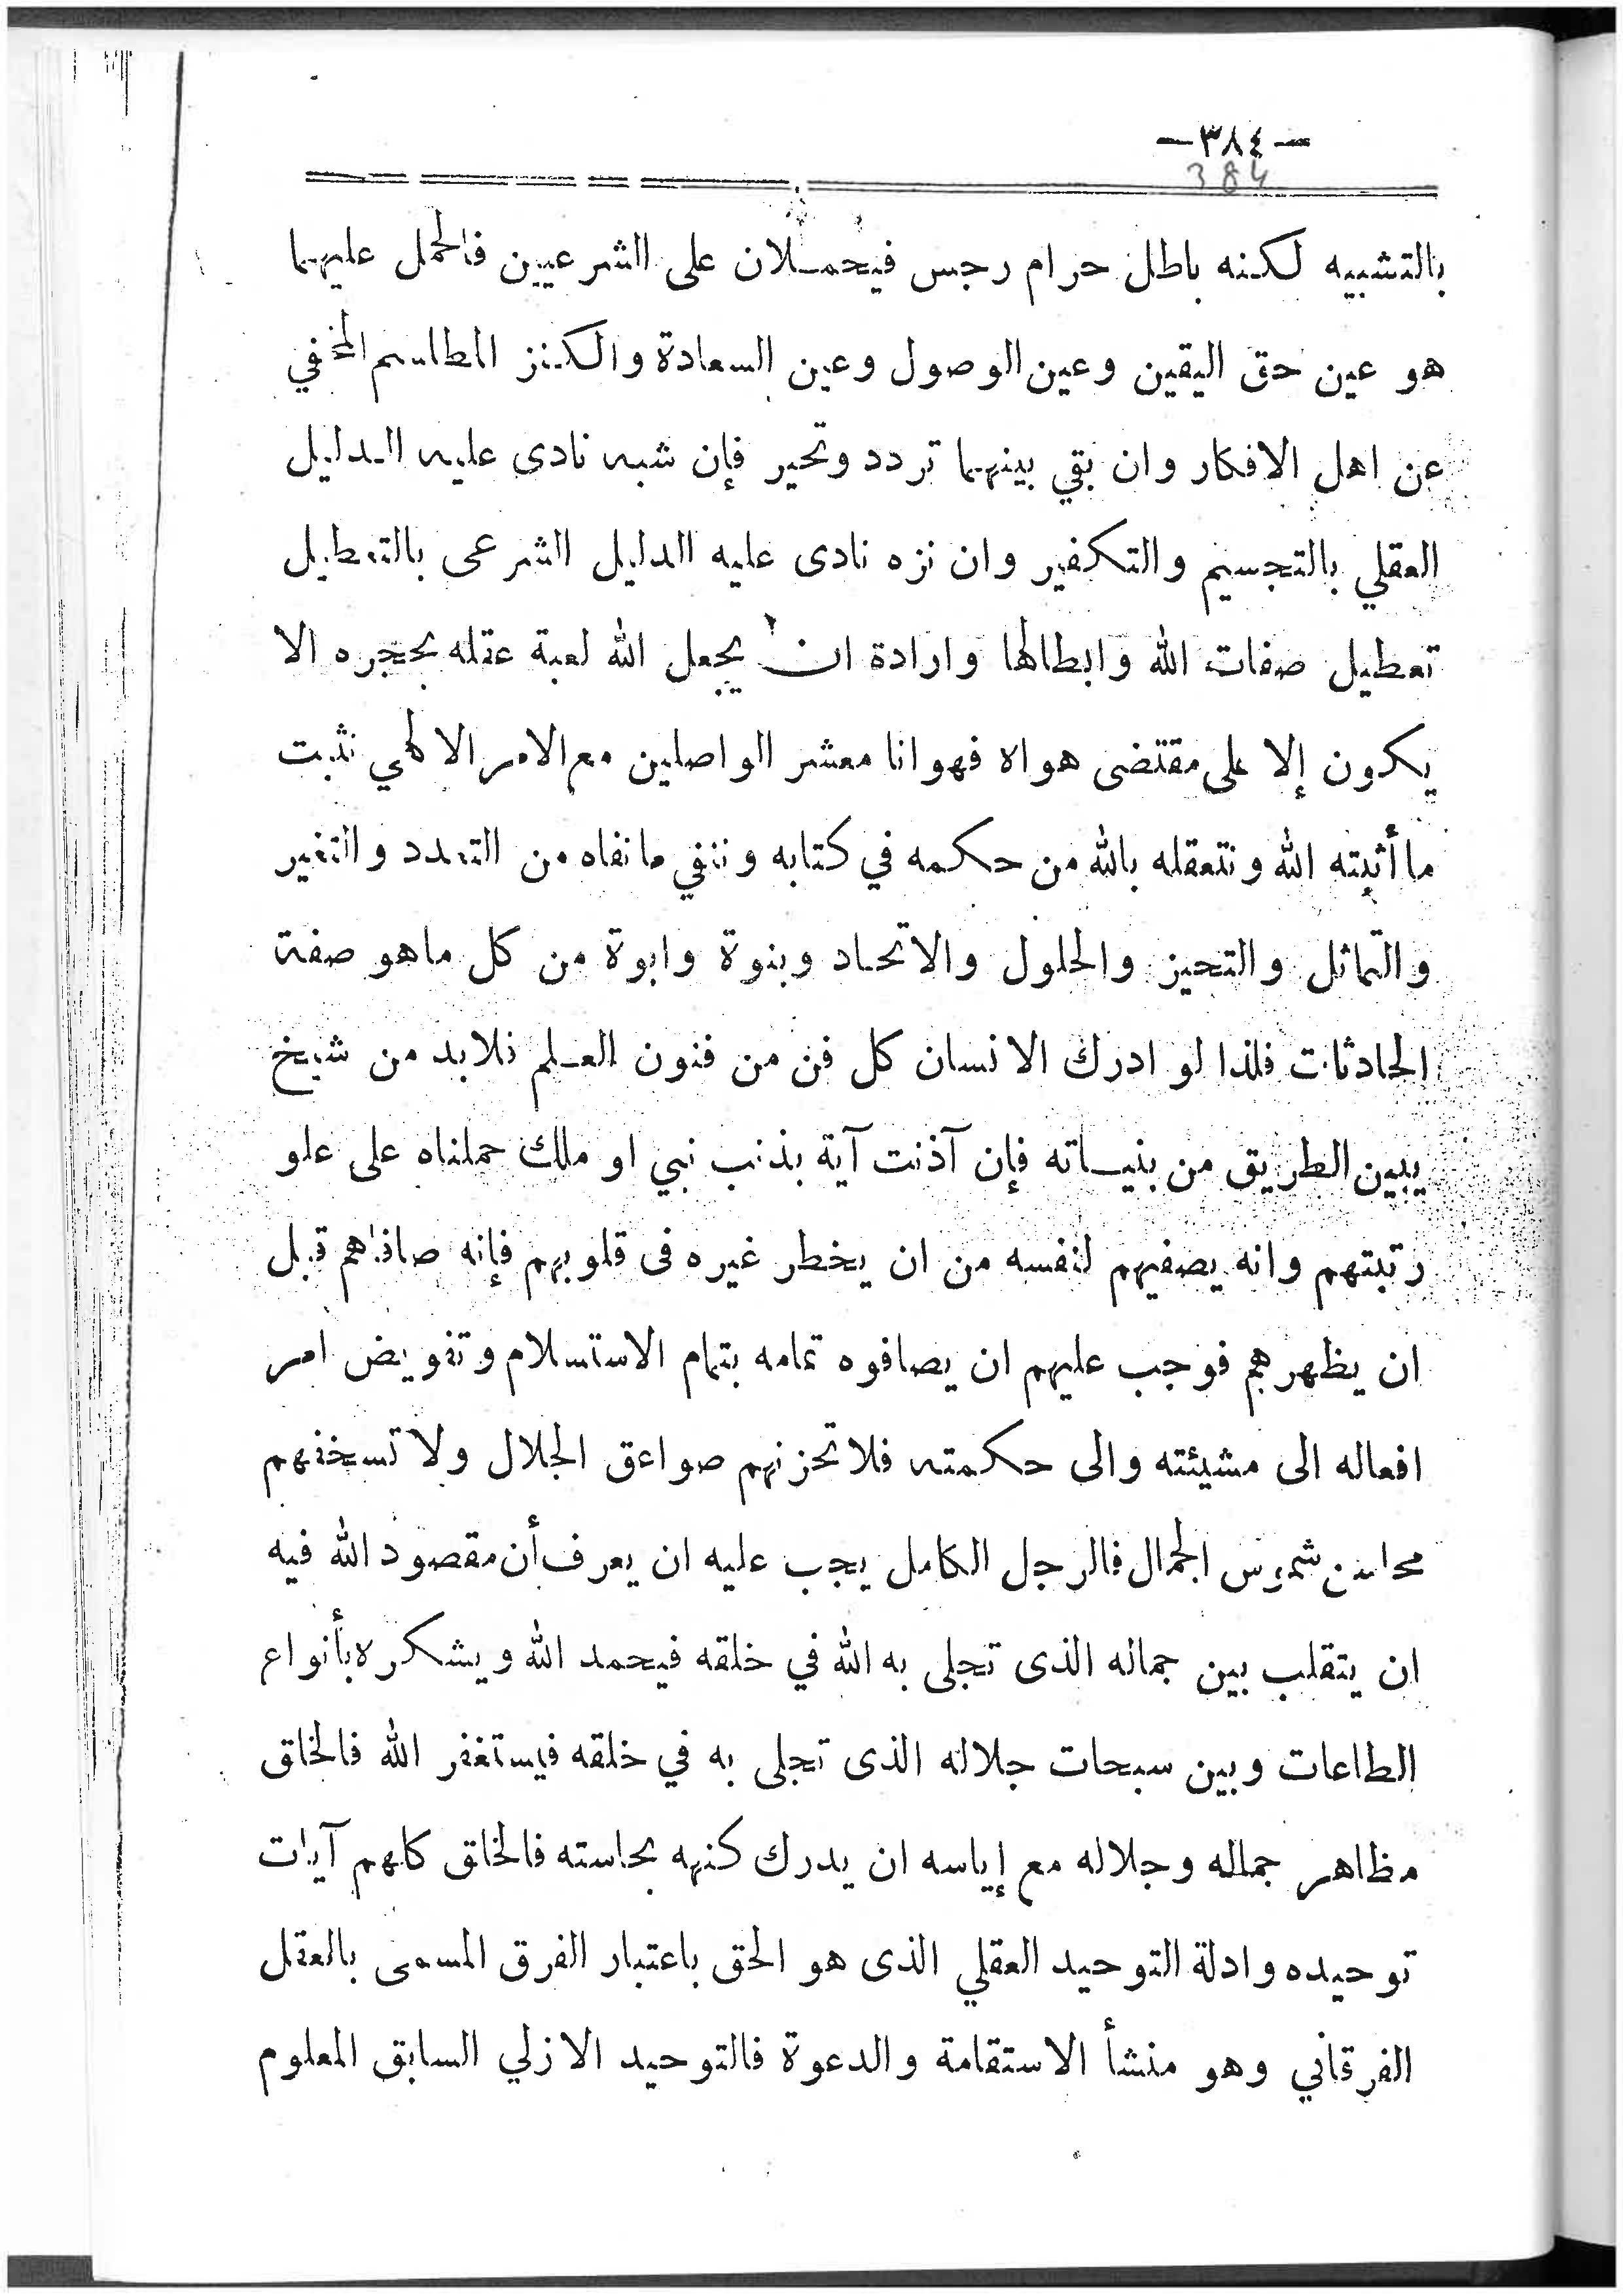 —٣٨٤—
384
بالتشبيه لكنه باطل حرام رجس فيحملان على الشرعيين فالحمل عليهما
هو عين حق اليقين وعين الوصول وعين السعادة والكنز المطلسم المخفي
عن اهل الافكار وان بقي بينهما تردد وتحير فإن شبه نادى عليه الدليل
العقلي بالتجسيم والتكفير وان نزه نادى عليه الدليل الشرعى بالتعطيل
تعطيل صفات الله وابطالها وارادة ان يجعل الله لعبة عقله بحجره الا
يكون إلا على مقتضى هواه فهوانا معشر الواصلين مع الامر الالهي نثبت
ما أثبته الله ونتعقله بالله من حكمه في كتابه وننفي ما نفاه من التعدد والتغير
والتماثل والتحيز والحلول والاتحاد وبنوة وابوة من كل ماهو صفة
الحادثات فلذا لو ادرك الانسان كل فن من فنون العلم فلابد من شيخ
يبين الطريق من بنياته فإن آذنت آية بذنب نبي او ملك حملناه على علو
رتبتهم وانه يصفيهم لنفسه من ان يخطر غيره فى قلوبهم فإنه صافاهم قبل
ان يظهرهم فوجب عليهم ان يصافوه تمامه بتمام الاستسلام وتفويض امر
افعاله الى مشيئته والى حكمته فلا تحزنهم صواعق الجلال ولا تسخفهم
محاسن شموس الجمال فالرجل الكامل يجب عليه ان يعرف أن مقصود الله فيه
ان يتقلب بين جماله الذى تجلى به الله في خلقه فيحمد الله ويشكره بأنواع
الطاعات وبين سبحات جلاله الذى تجلى به في خلقه فيستغفر الله فالخلق
مظاهر جماله وجلاله مع إياسه ان يدرك كنهه بحاسته فالخلق كلهم آيات
توحيده وادلة التوحيد العقلي الذى هو الحق باعتبار الفرق المسمى بالعقل
الفرقاني وهو منشأ الاستقامة والدعوة فالتوحيد الازلي السابق المعلوم